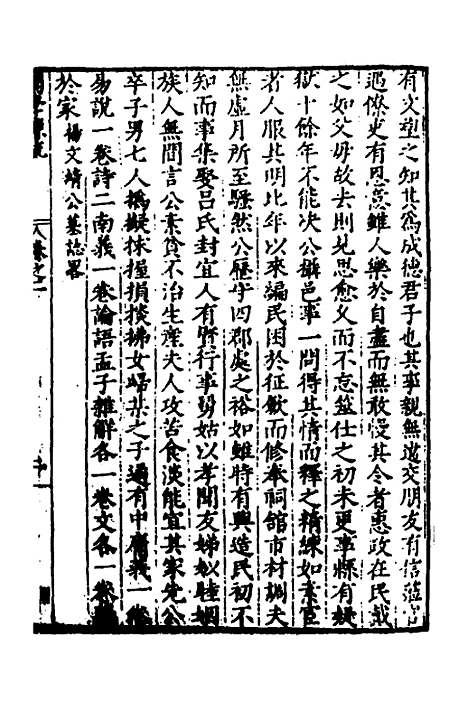 有文望之知其為成德君子也其事親無違交朋友有信蒞官
遇僚吏有恩意雖人樂於自盡而無敢慢其令者惠政在民戴
之如父母故去則見思愈久而不忘筮仕之初未更事縣有疑
獄十餘年不能決公攝邑事一問得其情而釋之精練如素宦
者人服其明比年以來編民困於征歛而修奉祠館市材調夫
無虛月所至騷然公歷守四郡處之裕如雖時有興造民初不
知而事集娶呂氏封宜人有賢行事舅姑以孝聞友娣姒睦姻
族人無間言公素貧不治生產夫人攻苦食淡能宜其家先公
卒子男七人撝擬掞握損掞拂女歸某之子適有中庸義一卷
易說一卷詩二南義一卷論語孟子雜解各一卷文各一卷藏
於家楊文靖公墓誌畧